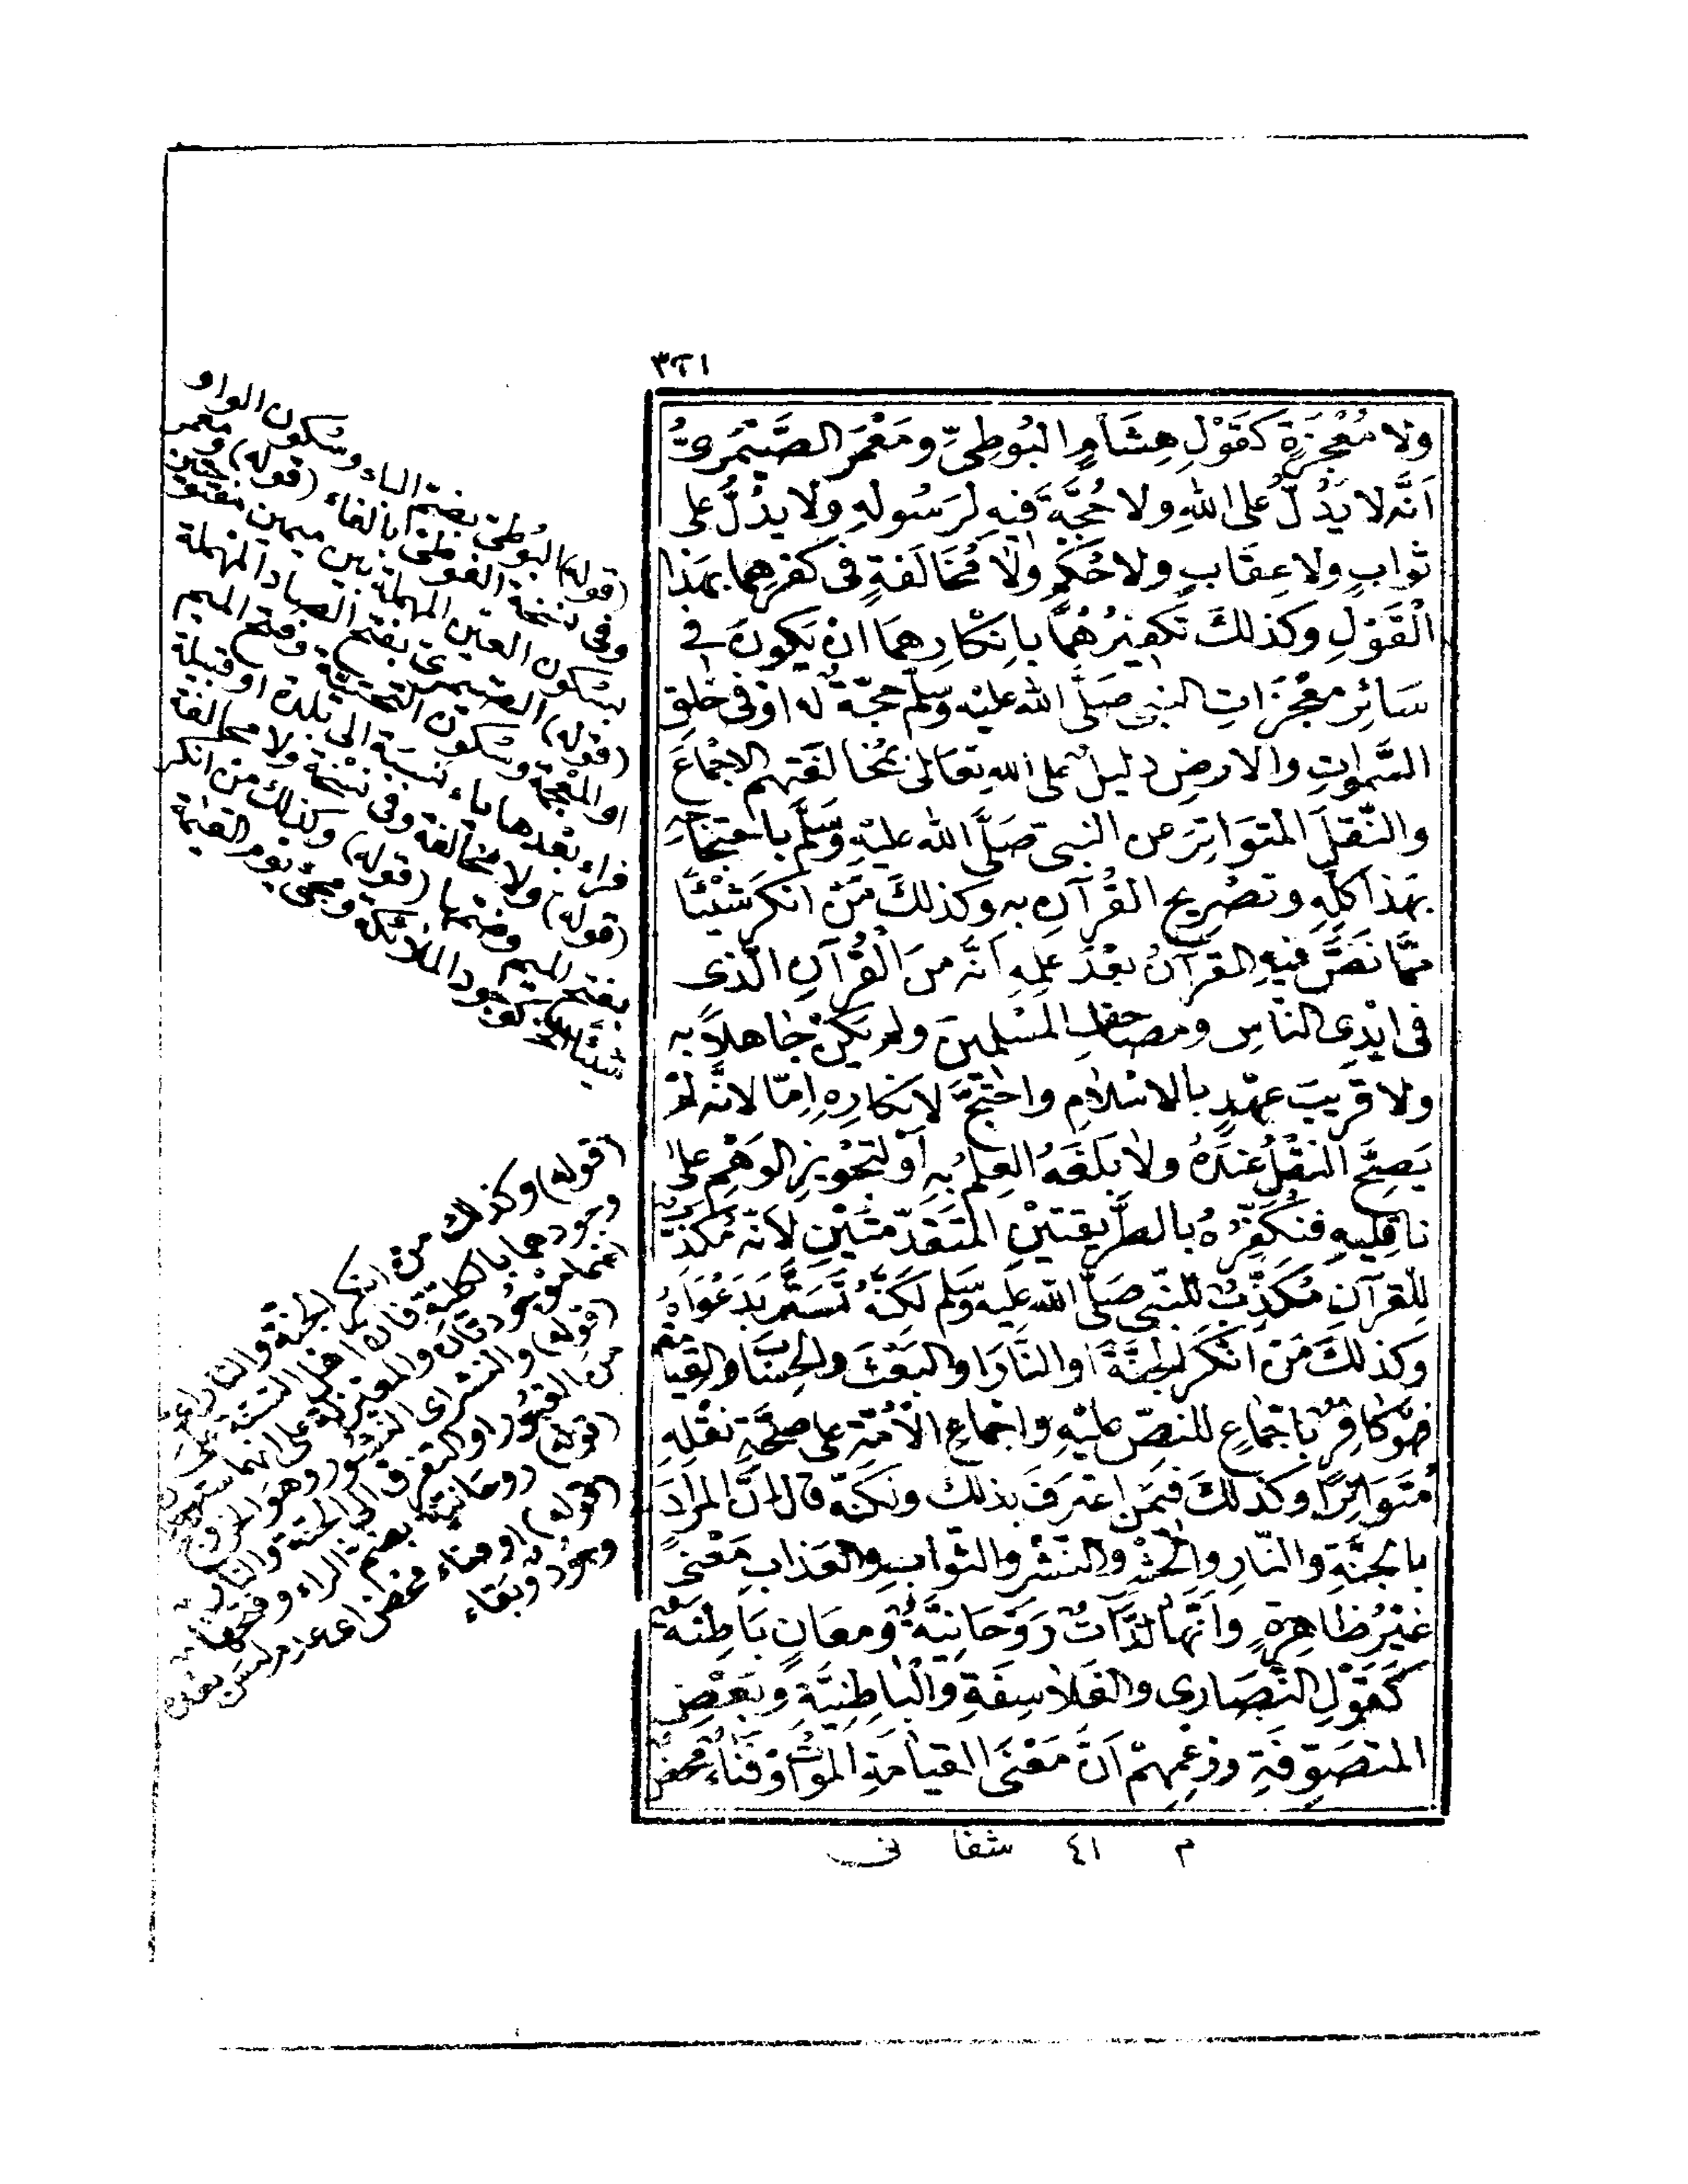 ٣٢١
ولا مُعْجِزَةٍ كَقَوْلِ هِشَامٍ البُوطِىِّ ومَعْمَرِ الصَّيْمَرِىِّ
اَنَّه لا يَدُلُّ على اللهِ ولا حُجَّةَ فيهِ لِرَسُولِهِ ولا يدُلُّ على
ثوابٍ ولا عِقَابٍ ولا حُكمٍ ولا مُخَالَفةٍ فى كفرِهِما بهذا
القَوْلِ وكذلكَ تكفيرُهُمَا بإنْكارِهِمَا انْ يَكونَ فى
سَائِرِ معْجِزَاتِ النبىِ صَلَّى الله عليْه وسَلّم حجّةٌ له اوْفى خلقِ
السَّمواتِ والارضِ دليلٌ على اللهِ تعَالى لمُخَالفَتِهم الاجْمَاعَ
والنّقلَ المتوَاتِرَ عن النبى صَلَّى الله عليْهِ وسَلَّم باحتِجَاجِهِ
بهَذا كلِّهِ وتصْرِيحِ القُرآنِ به وكذلكَ مَنْ انكرَ شيْئًا
ممّا نَصَّ فيهِ القرآنُ بعْدَ عِلمِهِ اَنَّه منَ القُرآنِ الّذى
فى ايْدِى النّاسِ ومصَاحفِ المسْلِمينَ ولم يَكنْ جَاهلاً به
ولا قريبَ عهْدٍ بالاسْلامِ واحْتجَّ لانكارِهِ اِمّا لانَّه لمْ
يَصِحَّ النقْلُ عندَهُ ولا بَلَغَهُ العِلمُ بِهِ اَوْ لتجْويزِ الوَهْمِ على
ناقِلِيهِ فنكَفِّرُهُ بالطَّريقتيْنِ المتَقَدِّمتَيْنِ لاَنّه مُكَذِّبٌ
لِلقرآنِ مُكَذِّبٌ للنّبى صَلّى الله عليْه وسَلم لكنَّهُ تَسَتَّرَ بدَعْوَاهُ
وكذلكَ مَنْ انْكرَ الجَنَّةَ او النَّارَ او البَعْثَ والحِسَابَ او القِيَامَةَ
فهُوَ كافرٌ باجْمَاعٍ للنصِّ عليْهِ واجْماعِ الاُمّةِ على صِحَّةِ نقْلِهِ
مُتَواتِرًا وكذلكَ فيمَنِ اعْترَفَ بذلك ولكنّه قال انَّ المرادَ
بالجَنَّةِ والنّارِ والحَشْرِ والنَشْرِ والثّوابِ والعَذابِ مَعْنى
غيْرُ ظَاهِرِهِ وَانَّهَا لَذَّاتٌ رَوْحَانِيَّةٌ ومعَانٍ بَاطِنَةٌ
كَقوْلِ النَّصَارى والفَلاسِفَةِ والباطِنيَّةِ وبَعْضِ
المتصَوِّفَةِ وزعْمِهِمْ انَّ مَعْنَى القيامَةِ الموْتُ اوْ فَنَاءٌ محْضٌ
م ٤١ شفا نى
(قوله) البُوطِىّ بضمّ الباء وسُكون الواو
وفى نسْخة الفوطى بالفاء (قوله) ومعمر
بسكون العين المهملة بين ميمين مفتوحتين
(قوله) الصيمرى بفتح الصاد المهملة
او المعْجمة وسكون التحتيّة وفتح الميم
فراء بَعْدها ياء نسبَة الى بلدة او قبيلة
(قوله) ولا مخالفة وفى نسْخة ولا مخالفة
بفتح الميم وضمّها (قوله) وكذلك من انكر
شيئًا كوجود الملائكة ومجئ يوم القيٰمة
(قوله) وكذلك من انكر الجنة والنار
وجودهما بالكلية فان اهل السنّة على
انهما موجودتان والمعتزلة على انهما ستوجدان
(قوله) والنشر اى النشور وهو الخروج
من القبور او التفرق الى الجنة والنار
(قوله) روحانية بضم الراء وفتحها
(قوله) او فناء محْض اى عدم ليس بعده
وجُود وبَقاء